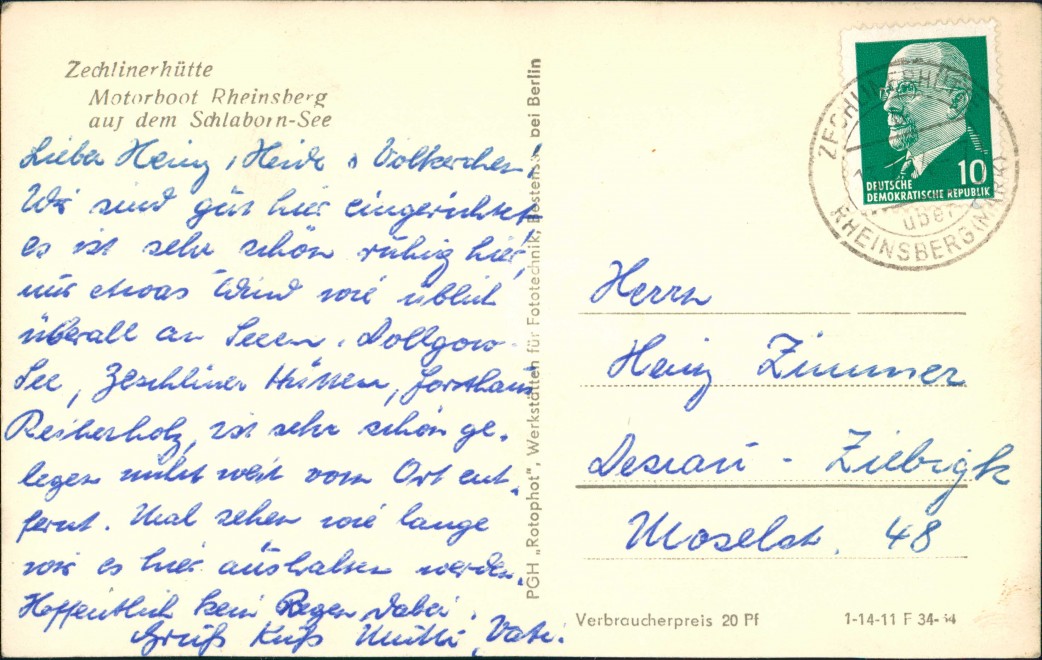 Zechlinerhütte
Motorboot Rheinsberg
auf dem Schlaborn-See
Lieber Heinz, Heide u Volkerchen!
Wir sind gut hier eingerichtet
es ist sehr schön ruhig hier,
nur etwas Wind wie üblich
überall an Seeen. Dollgow-
See, Zeschliner Hütten, Forsthaus
Reiherholz, ist sehr schön ge-
legen nicht weit vom Ort ent-
fernt. Mal sehen wie lange
wir es hier aushalten werden.
Hoffentlich kein Regen dabei.
Gruß Kuß Mutti, Vati.
PGH „Rotophot“, Werkstätten für Fototechnik, Bestensee bei Berlin
DEUTSCHE
DEMOKRATISCHE REPUBLIK
10
ZECHLINERHÜTTE
über
RHEINSBERG (MARK)
Herrn
Heinz Zimmer
Dessau - Ziebigk
Moselstr. 48
Verbraucherpreis 20 Pf
1-14-11 F 34-